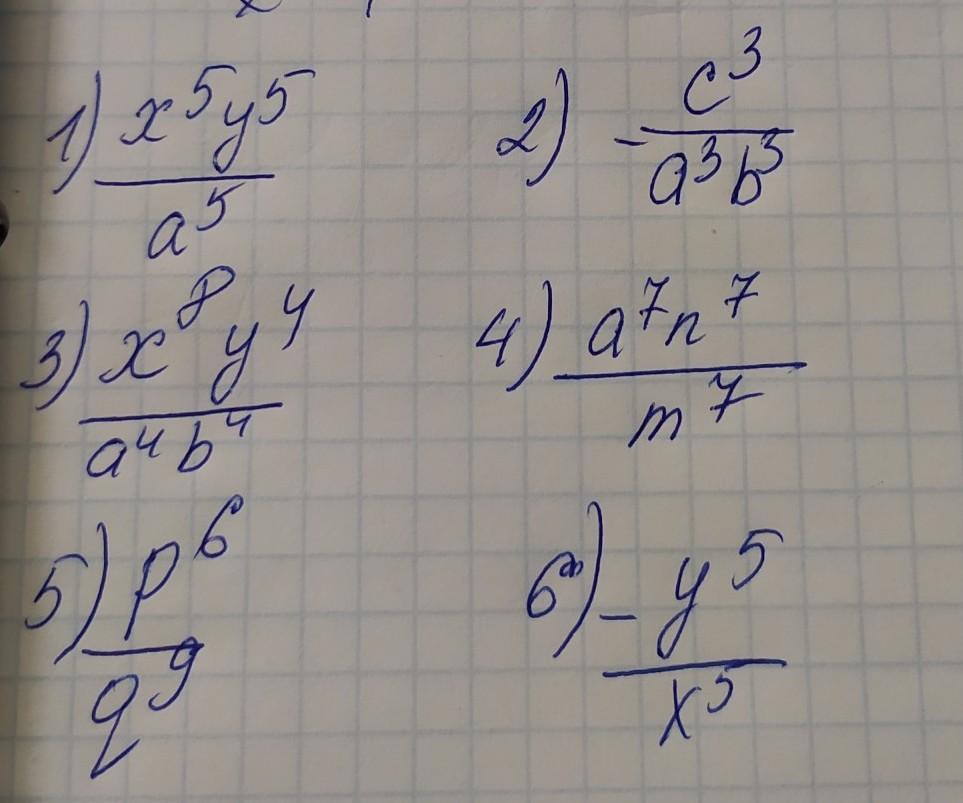 1) x⁵y⁵ / a⁵
2) - c³ / a³b³
3) x⁸y⁴ / a⁴b⁴
4) a⁷n⁷ / m⁷
5) p⁶ / q⁹
6) - y⁵ / x⁵